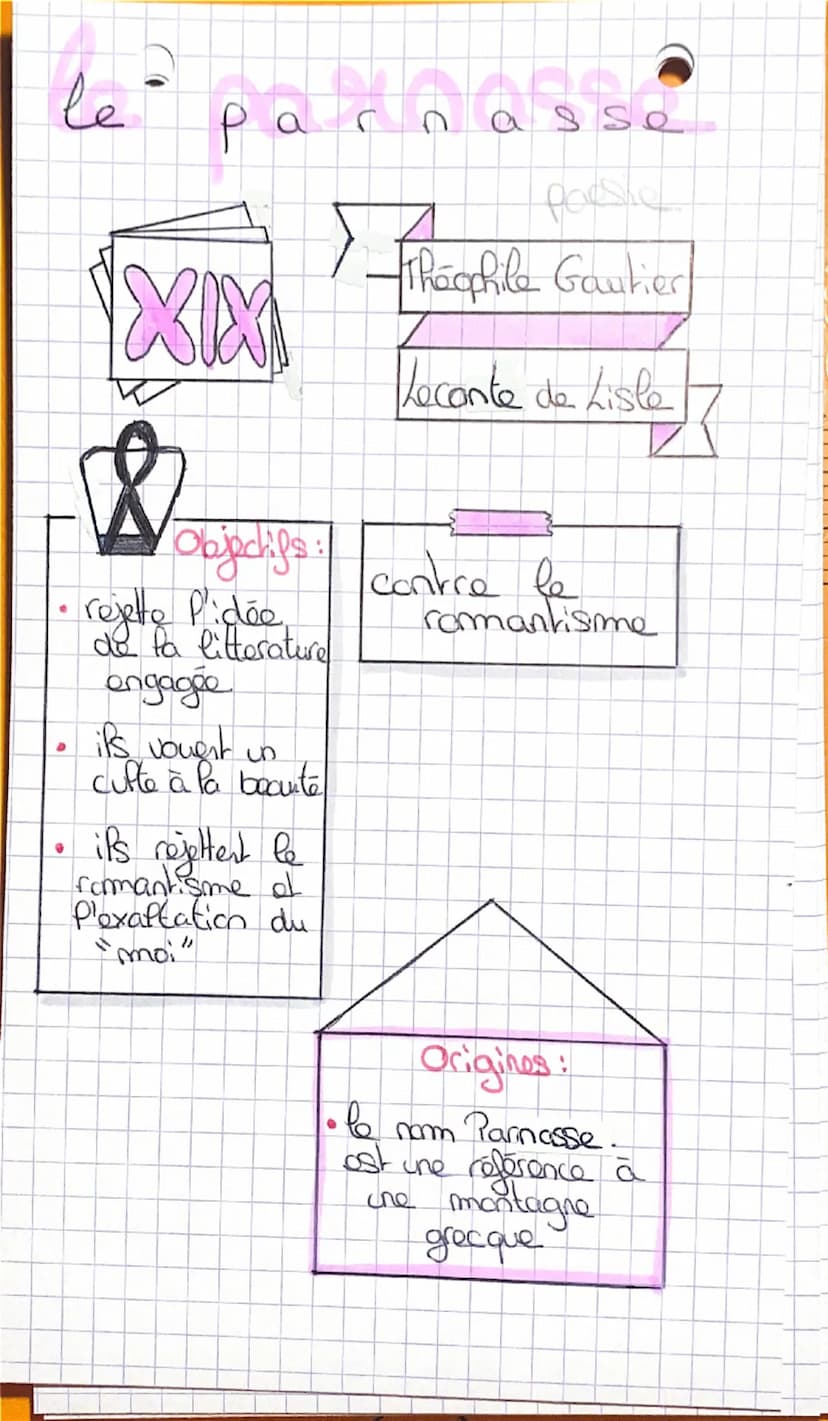 le parnasse
poesie
XIX
Théophile Gautier
Leconte de Lisle
Objectifs :
• rejette l'idée
de la litterature
engagée
• ils vouent un
culte à la beauté
• ils rejettent le
romantisme et
l'exaltation du
"moi"
contre le
romantisme
Origines :
• le nom Parnasse
est une référence à
une montagne
grecque